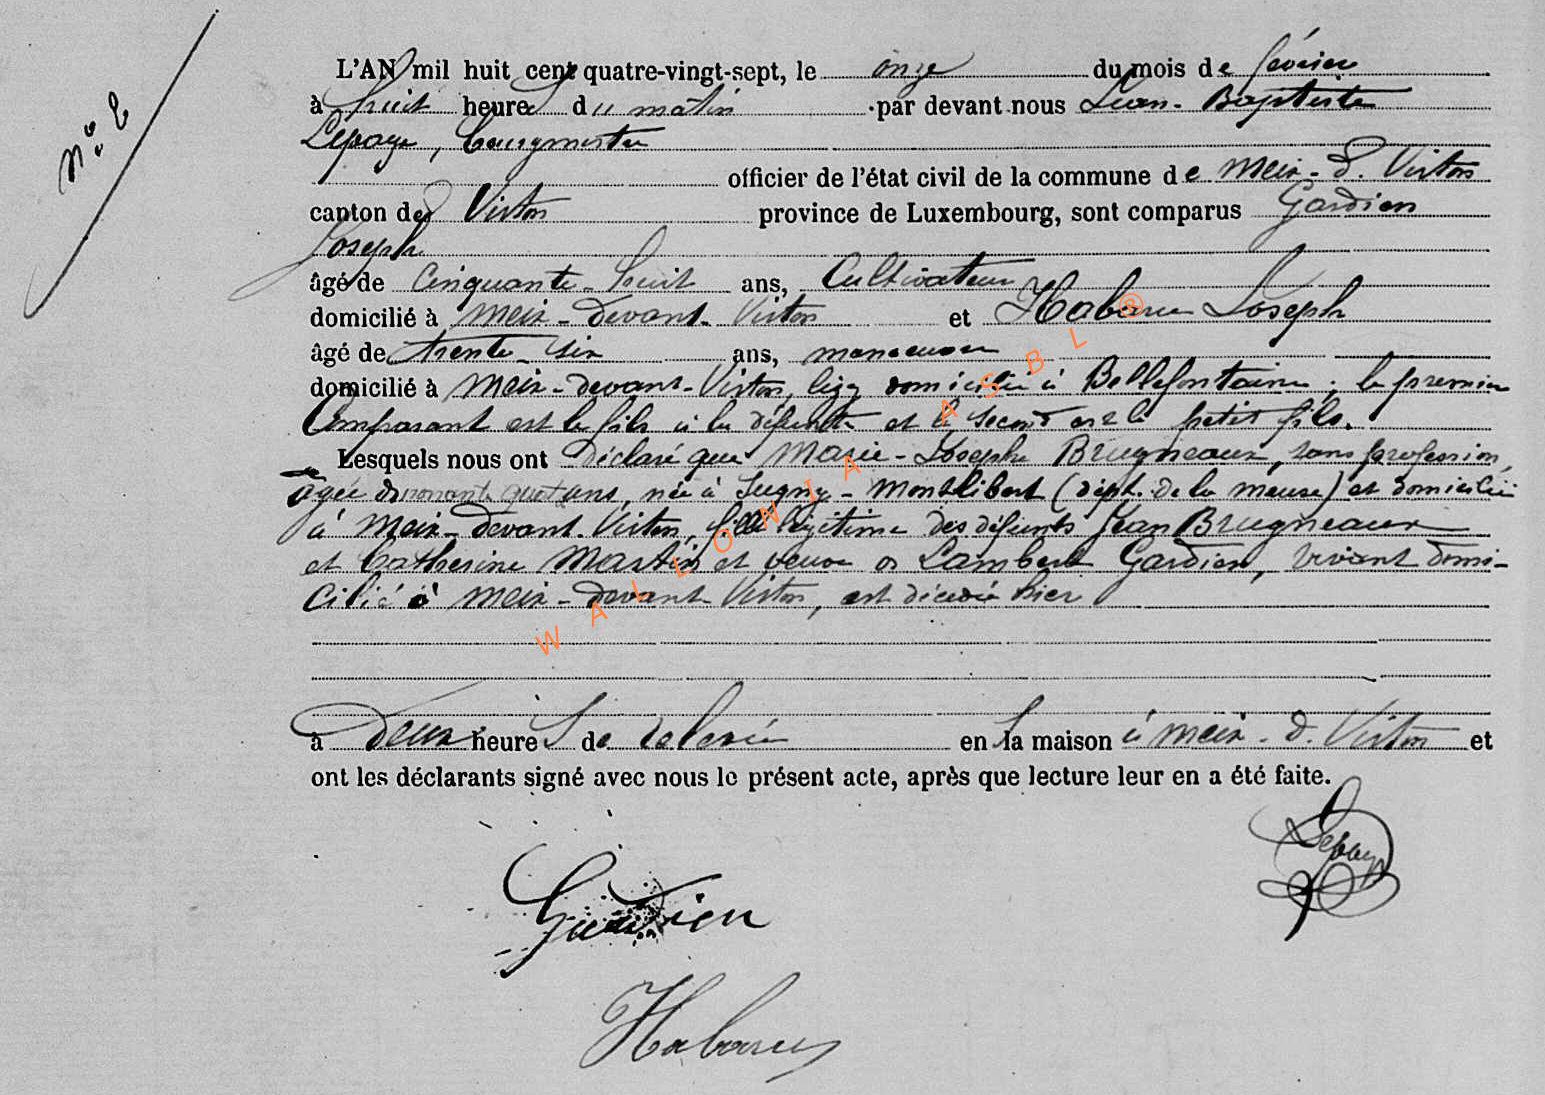 N° 2
L'AN mil huit cent quatre-vingt-sept, le onze du mois de février
à huit heures du matin par devant nous Jean-Baptiste
Lepage, Bourgmestre
officier de l'état civil de la commune de Meix-d. Virton
canton de Virton province de Luxembourg, sont comparus Gardien
Joseph
âgé de cinquante-huit ans, Cultivateur
domicilié à Meix-devant-Virton et Habaru Joseph
âgé de trente-six ans, manoeuvre
domicilié à Meix-devant-Virton, domicilié à Bellefontaine, le premier
Comparant est le fils à la défunte et le second est le petit fils.
Lesquels nous ont déclaré que Marie-Josephe Brugneaux, sans profession,
agée de nonante quatre ans, née à Jugny-Montlibert (dépt. de la Meuse) et domiciliée
à Meix-devant-Virton, fille légitime des défunts Jean Brugneaux
et Catherine Martin et veuve de Lambert Gardien, vivant domi-
cilié à Meix-devant Virton, est décédée hier
à deux heures de relevée en sa maison à Meix-d. Virton et
ont les déclarants signé avec nous le présent acte, après que lecture leur en a été faite.
Lepage
Gardien
Habaru
WALLONIA ASBL ®